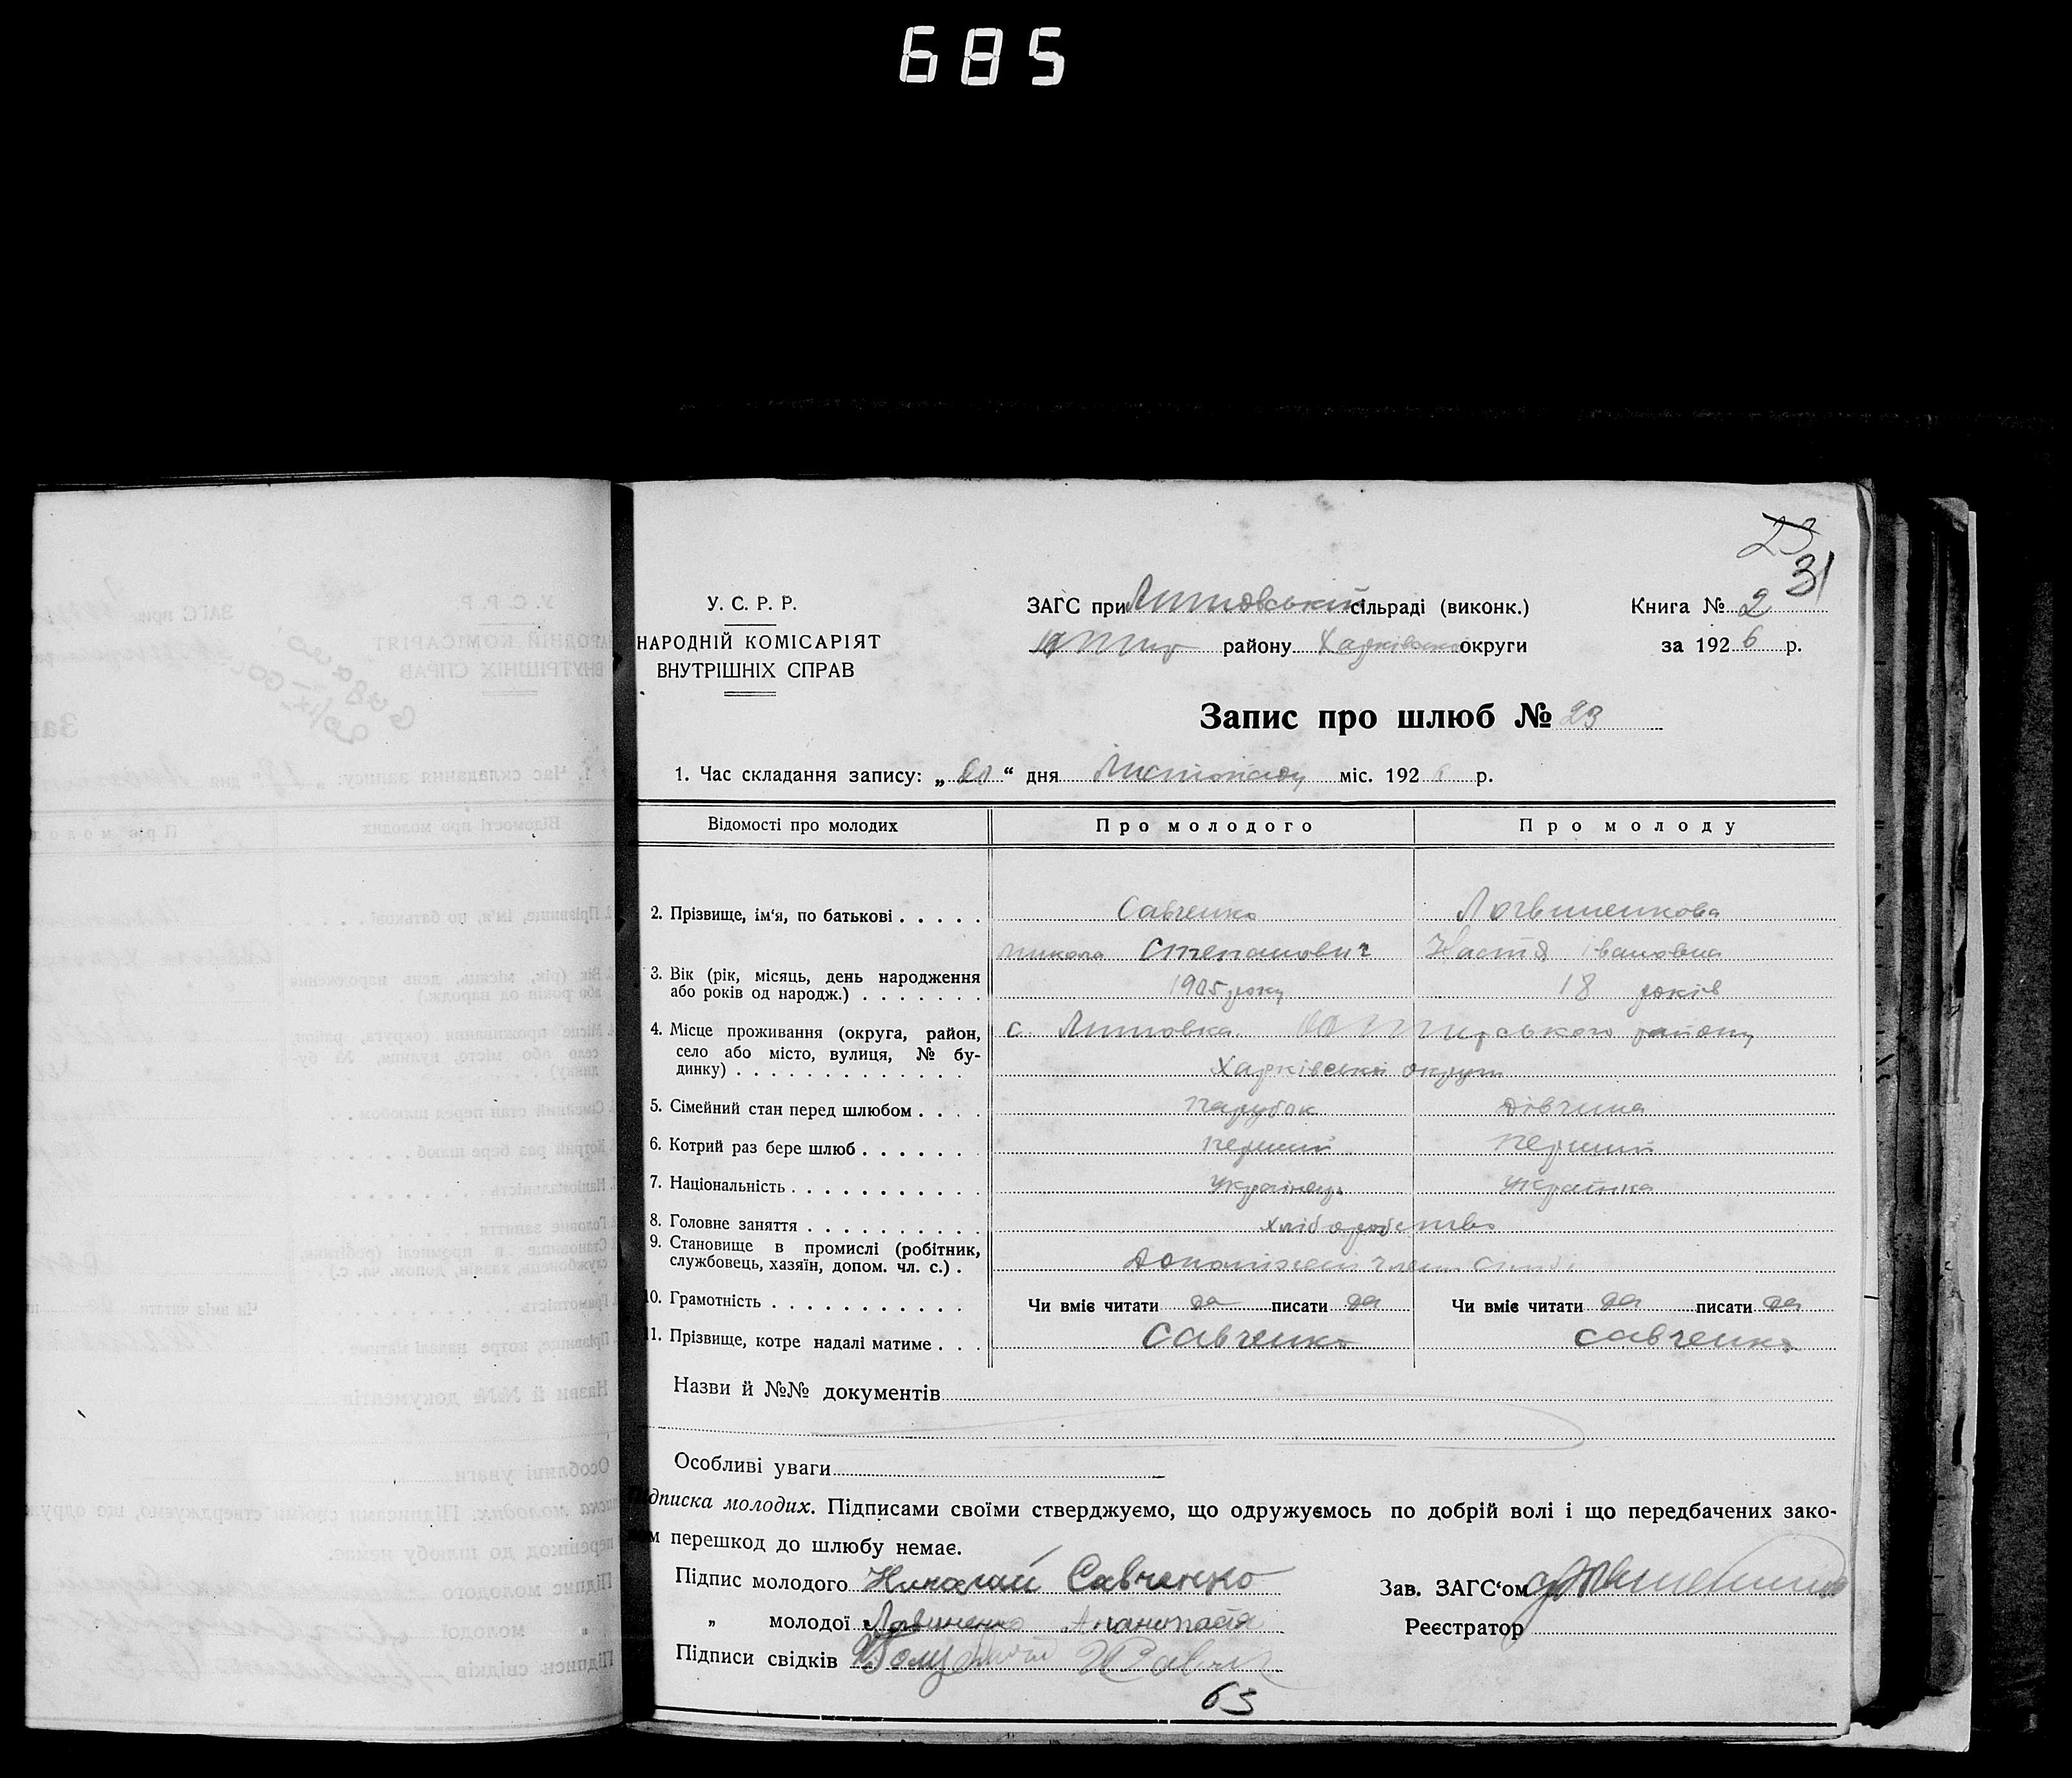 685
23
31
У. С. Р. Р.
НАРОДНІЙ КОМІСАРІЯТ
ВНУТРІШНІХ СПРАВ
ЗАГС при Литовській сільраді (виконк.)
району Харківської округи
Книга № 2
за 1926 р.
Запис про шлюб № 23
1. Час складання запису: „ “ дня Листопаду міс. 1926 р.
Відомості про молодих Про молодого Про молоду
2. Прізвище, ім‘я, по батькові . . . . . Савченко Логвиненкова
Микола Степанович Настя Івановна
3. Вік (рік, місяць, день народження
або років од народж.) . . . . . . . 1905 року 18 років
4. Місце проживання (округа, район, с. Литовка району
село або місто, вулиця, № бу-
динку) . . . . . . . . . . . . . Харківської округи
5. Сімейний стан перед шлюбом . . . . Парубок Дівчина
6. Котрий раз бере шлюб . . . . . . Перший Перший
7. Національність . . . . . . . . . . . Українець Українка
8. Головне заняття . . . . . . . . . . хліборобство
9. Становище в промислі (робітник,
службовець, хазяїн, допом. чл. с.) .
10. Грамотність . . . . . . . . . . . Чи вміє читати да писати да Чи вміє читати да писати да
11. Прізвище, котре надалі матиме . . . Савченко Савченко
Назви й №№ документів
Особливі уваги
дписка молодих. Підписами своїми стверджуємо, що одружуємось по добрій волі і що передбачених зако-
м перешкод до шлюбу немає.
Підпис молодого Николай Савченко
Зав. ЗАГС‘ом
„ молодої
Реєстратор
Підписи свідків
63